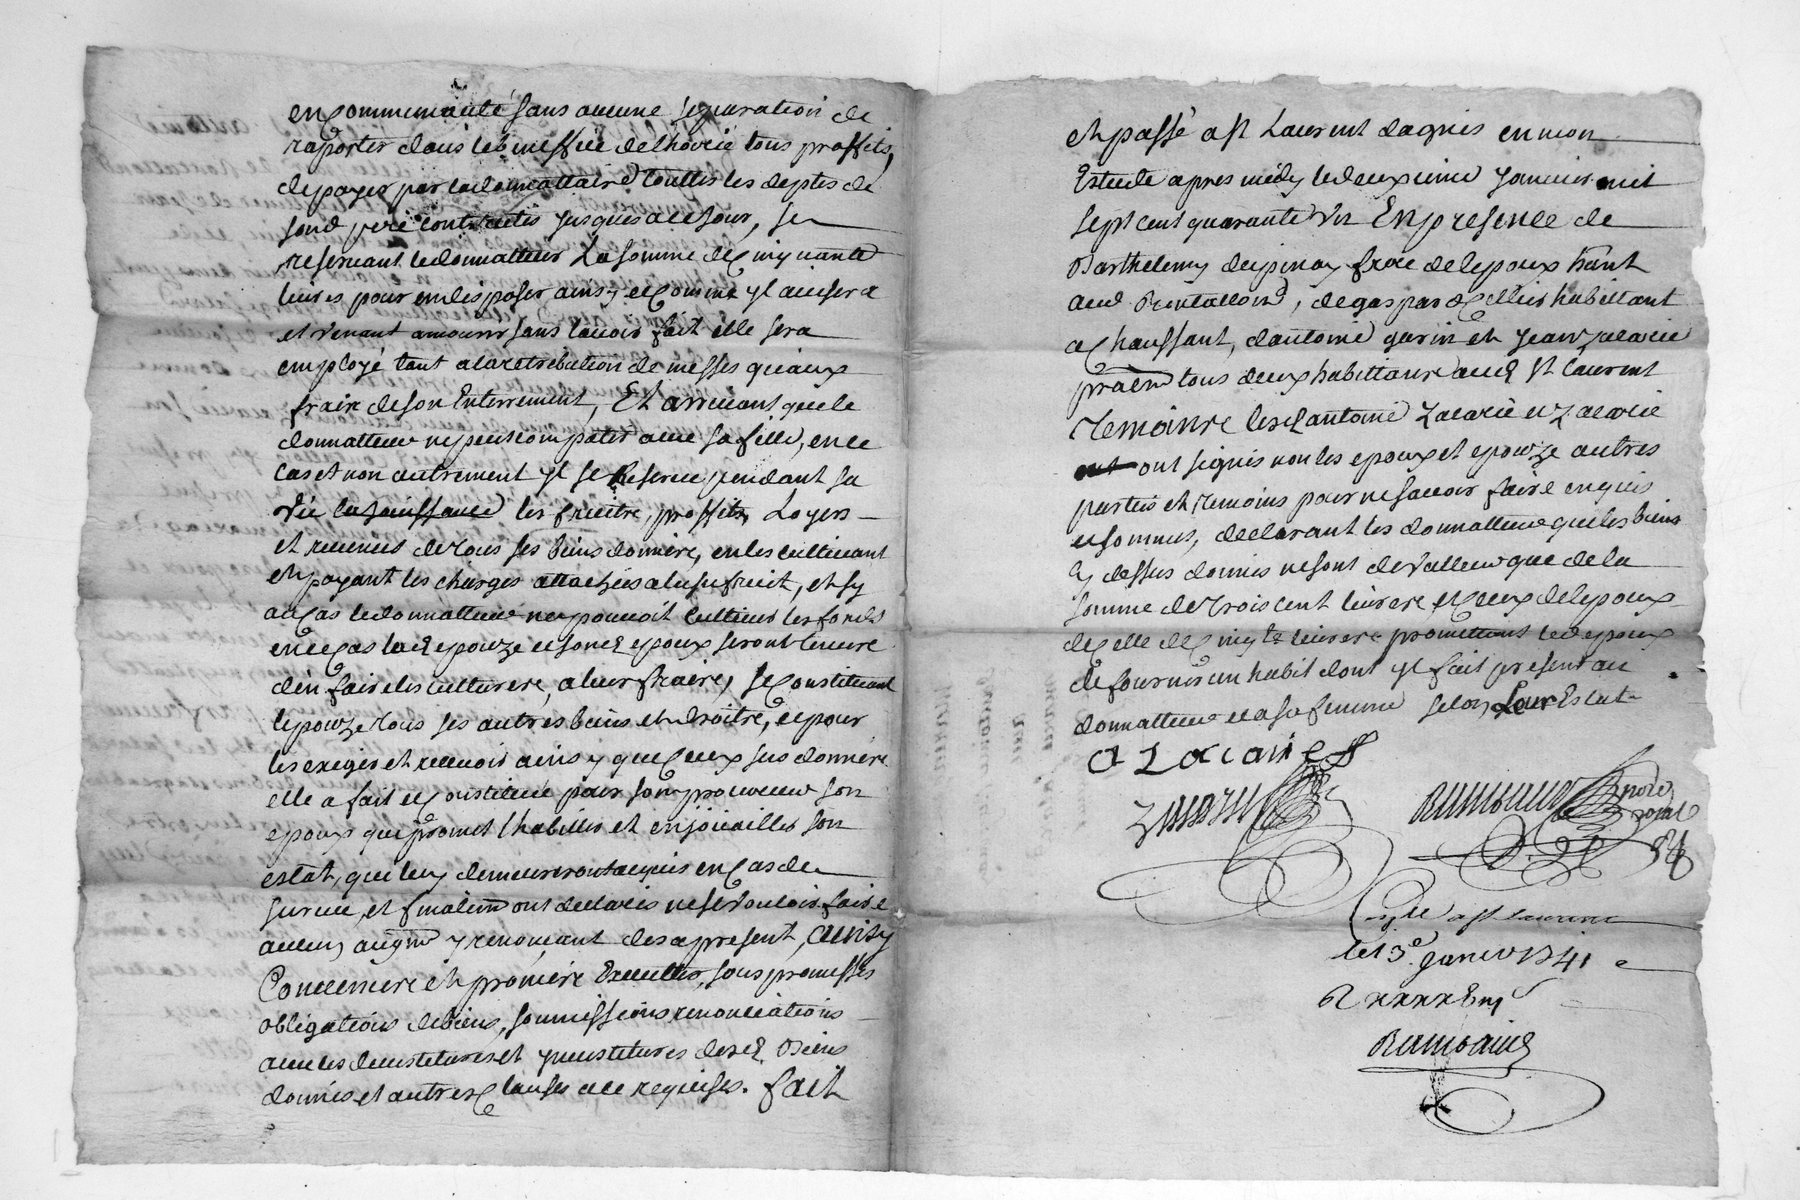 en communauté sans aucune separation de
raporter dans lebineffice delhoirie tous proffits,
depayer par ladonnattaire touttes les deptes de
fond peré contractés jusques a ce jour, se
reservant ledonnatteur la somme de cinquante
livres pour en disposer ainsy et comme yl avisera
et venant amourir sans lavoir fait elle sera
employé tant alaretribution de messes quaux
fraix de son Enterrement, Et arrivant que le
donnatteur ne peut compatir avec sa fille, en ce
cas et non autrement yl se Reserve pendant sa
vie la jouissance les fruitre, proffits, Loyers
et revenus de tous ses biens donnére, en les cultivant
et payant les charges attachées alusufruit, et sy
au cas ledonnatteur ne pouvoit cultiver les fonds
en ce cas lad epouze et son d epoux seront tenure
den faire les culturere, a leur fraire, se constituant
lepouze tous ses autres biens et droitre, et pour
les exiger et recevoir ainsy que ceux sus donnére
elle a fait et constitué pour son procureur son
epoux qui promet lhabiller et enjoüailler son
estat, qui luy demeureront acquis en cas de
survie, et finalem ont declarés ne se vouloir faire
aucun augm y renonçant des apresent, ainsy
Convenure et promire Executter, sous promesses
obligations de biens, soumissions renonciations
avec les devestitures et ynvestitures desd Biens
donnés et autres clauses a ce requises. fait
et passé a St Laurent dagnis en mon
Estude apres midy le deuxieme Janvier mil
sept cent quarante un En presence de
Barthelemy despinay frere de lepoux hant
aud Rontallon, de gaspar Cellier habittant
a Chaussant, dantoine guerin et Jean zacarie
praen tous deux habittanre aud St Laurent
Temoinre lesd antoine zacarie et zacarie
ont signés non les epoux et epouze autres
parties et temoins pour ne savoir faire enquis
et sommés, declarant les donnatteur que les biens
cy dessus donnés ne sont de valleur que de la
somme de trois cent livrere et ceux de lepoux
de celle de cinq te livrere promettant led epoux
de fournir un habit dont yl fait present au
donnatteur et a sa femme selon Leur Estat
a Zacarie
no.re
royal
Con.lle a St Laurent
le 13e Janvier 1741
R